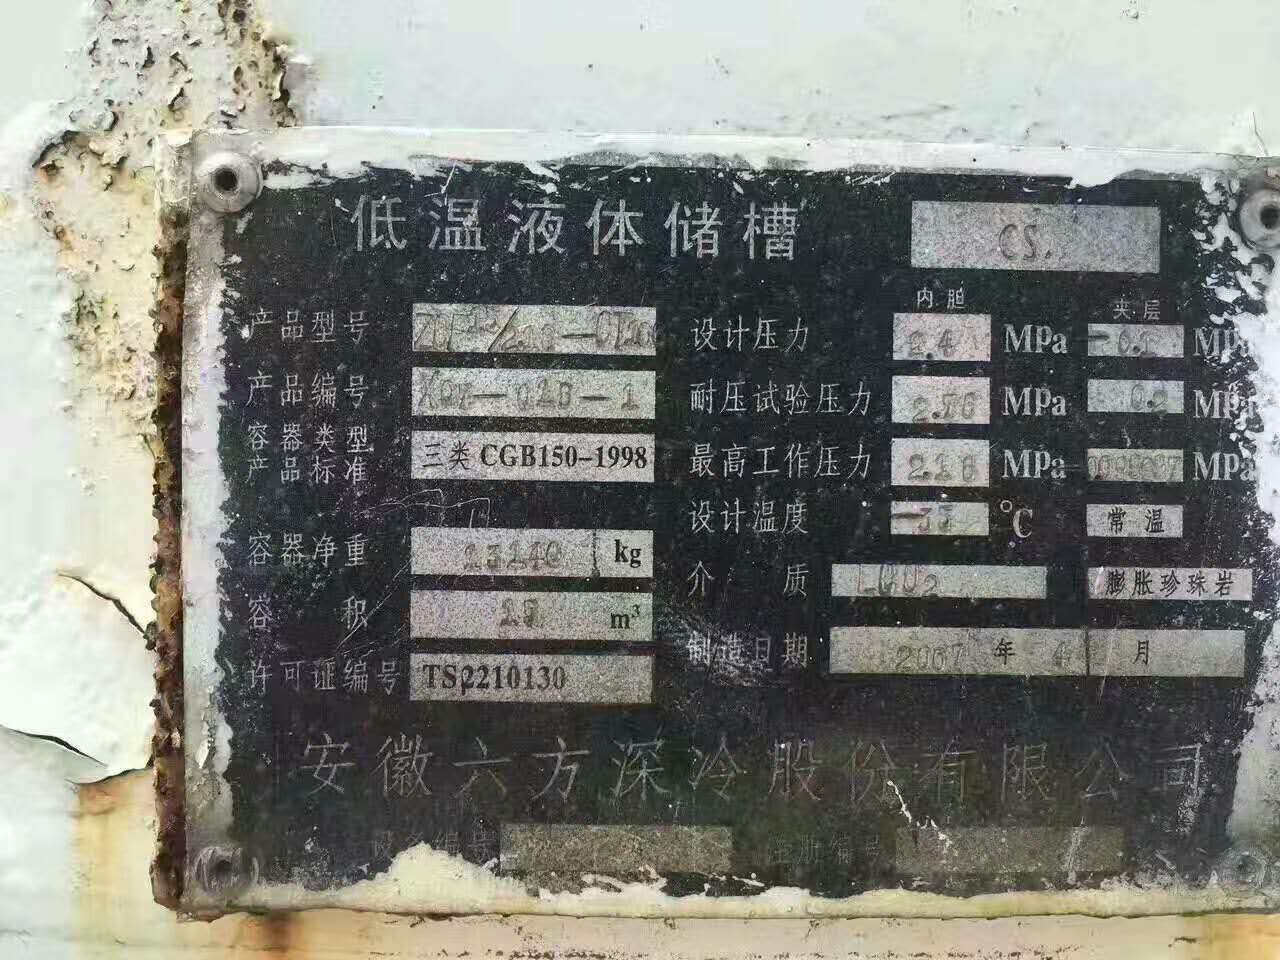 低温液体储槽 CS.
内胆 夹层
产品型号 设计压力 2.4 MPa -0.1 MPa
产品编号 耐压试验压力 2.76 MPa 0.2 MPa
容器类型
产品标准 三类 CGB150-1998 最高工作压力 2.16 MPa MPa
设计温度 ℃ 常温
容器净重 13140 kg
介质 LCO₂ 膨胀珍珠岩
容积 m³
制造日期 2007 年 4 月
许可证编号 TS2210130
安徽六方深冷股份有限公司
设备编号 注册编号